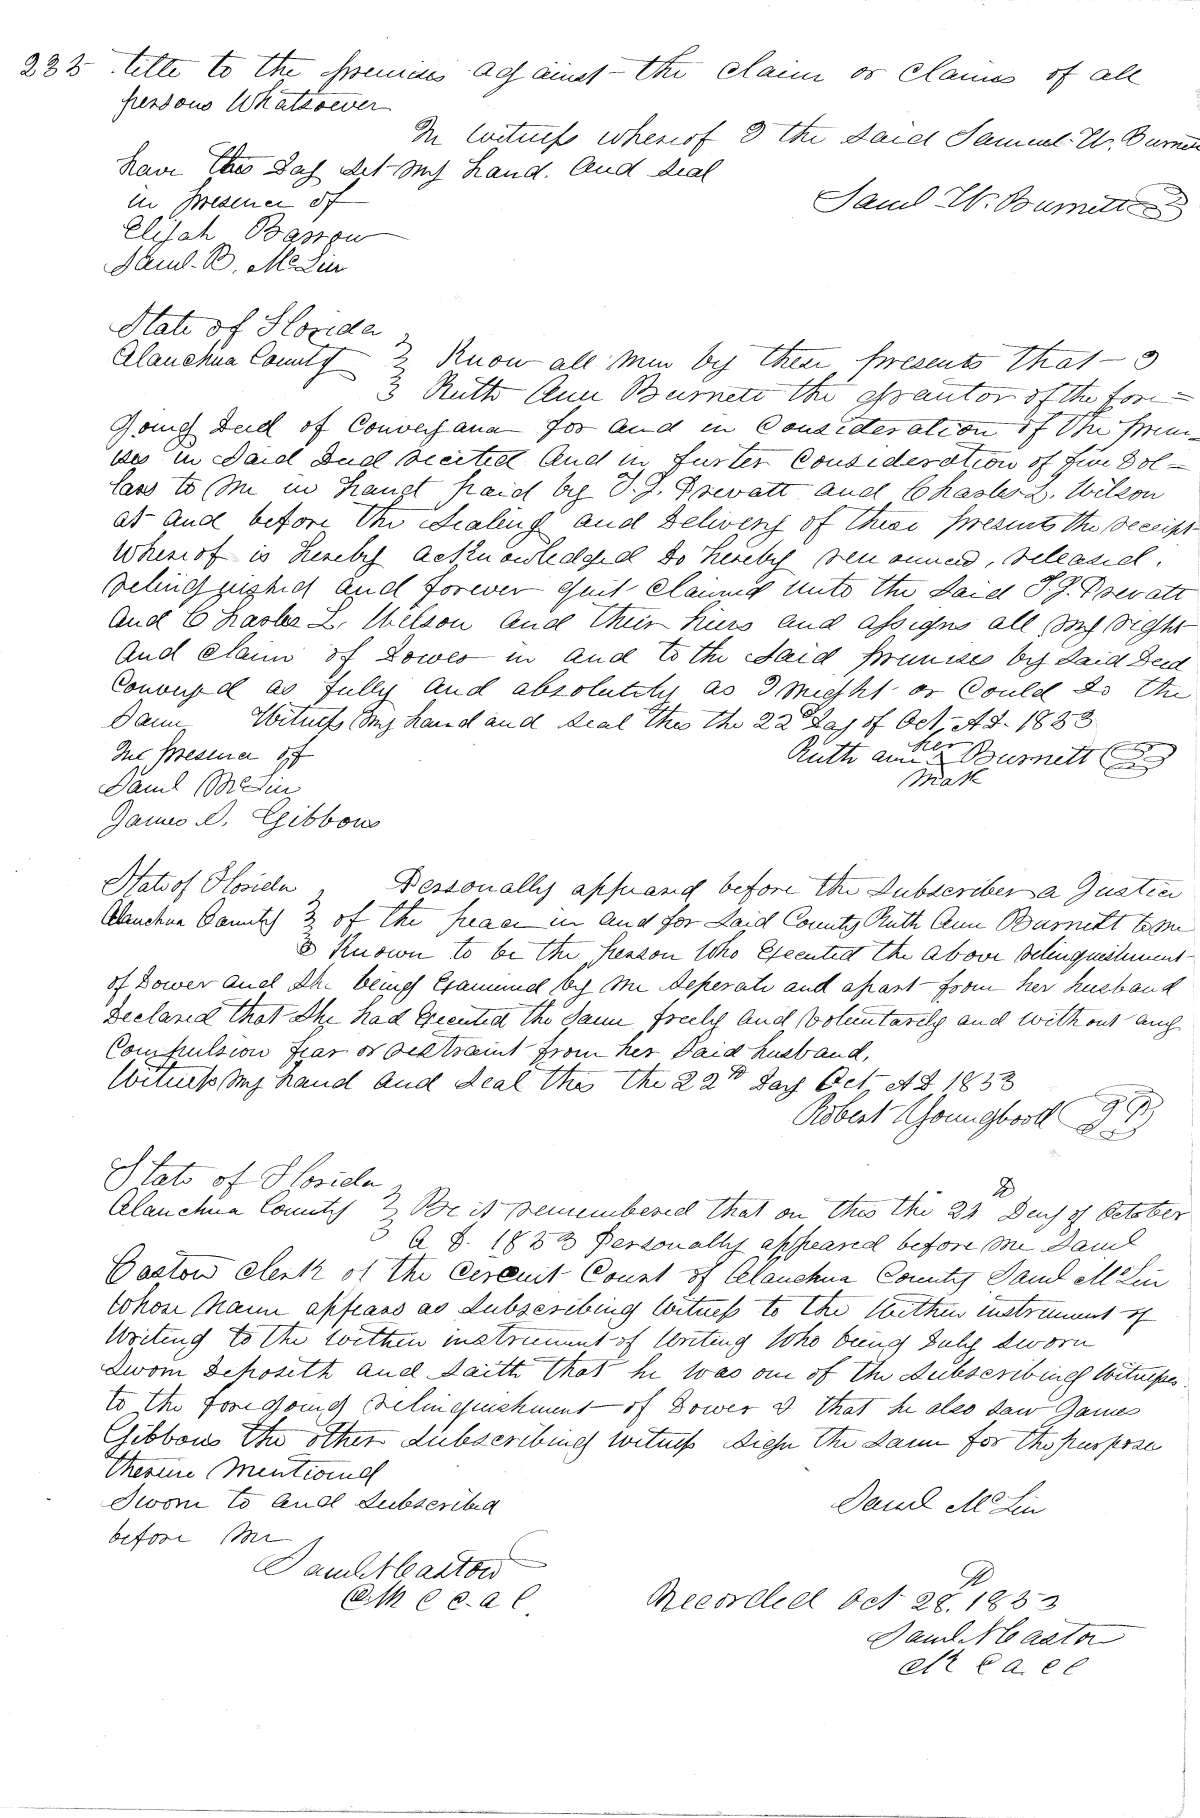 233 title to the premises against the claim or claims of all
persons Whatsoever
In Witness whereof I the Said Samuel W. Burnett
have this Day Set my hand. And Seal
in presence of Saml W. Burnett
Elijah Barrow
Saml. B. McLin
State of Florida
Alanchua County Know all Men by these presents that I
Ruth Ann Burnett the grantor of the fore=
going Deed of Conveyance for and in Consideration of the prem-
ises in Said Deed recited And in further Consideration of five Dol=
lars to Me in hand paid by J. J. Prevatt and Charles L. Wilson
at and before the Sealing and Delivery of these presents the receipt
Whereof is hereby acknowledged Do hereby renounced, released.
relinquished and forever quit claimed unto the Said J. J. Prevatt
And Charles L. Wilson And their hiers and assigns all my right
And claim of Dower in and to the Said premises by Said Deed
Conveyed as fully And absolutely as I might or Could Do the
Same Witness my hand and Seal this the 22d Day of Oct, A.D. 1853
In presence of Ruth ann her x Burnett
mark
Saml McLin
James D. Gibbons
State of Florida Personally appeared before the Subscriber a Justice
Alanchua County of the peace in and for Said County Ruth Ann Burnett to me
Known to be the person Who Executed the above relinquishment
of Dower and She being Examined by me Seperate and apart from her husband
Declared that She had Executed the Same freely and Voluntarely and without any
Compulsion fear or restraint from her Said husband,
Witness my hand And Seal this the 22d Day Oct, A D 1853
Robert Youngblood
State of Florida
Alanchua County Be it remembered that on this the 28th Day of October
A D. 1853 Personally appeared before me Saml
Caston Clerk of the Circuit Court of Alanchua County Saml McLin
Whose Name appears as Subscribing Witness to the Within instrument of
Writing to the Within instrument of Writing Who being Duly Sworn
Sworn Deposeth and Saith that he was one of the Subscribing Witnesses
to the foregoing relinquishment of Dower & that he also Saw James
Gibbons the other Subscribing Witness Sign the Same for the purpose
therein Mentioned
Sworn to and Subscribed Saml McLin
before Me
Saml N Caston
Clk C C. A C. Recorded Oct 28th 1853
Saml N Caston
Clk C A C C